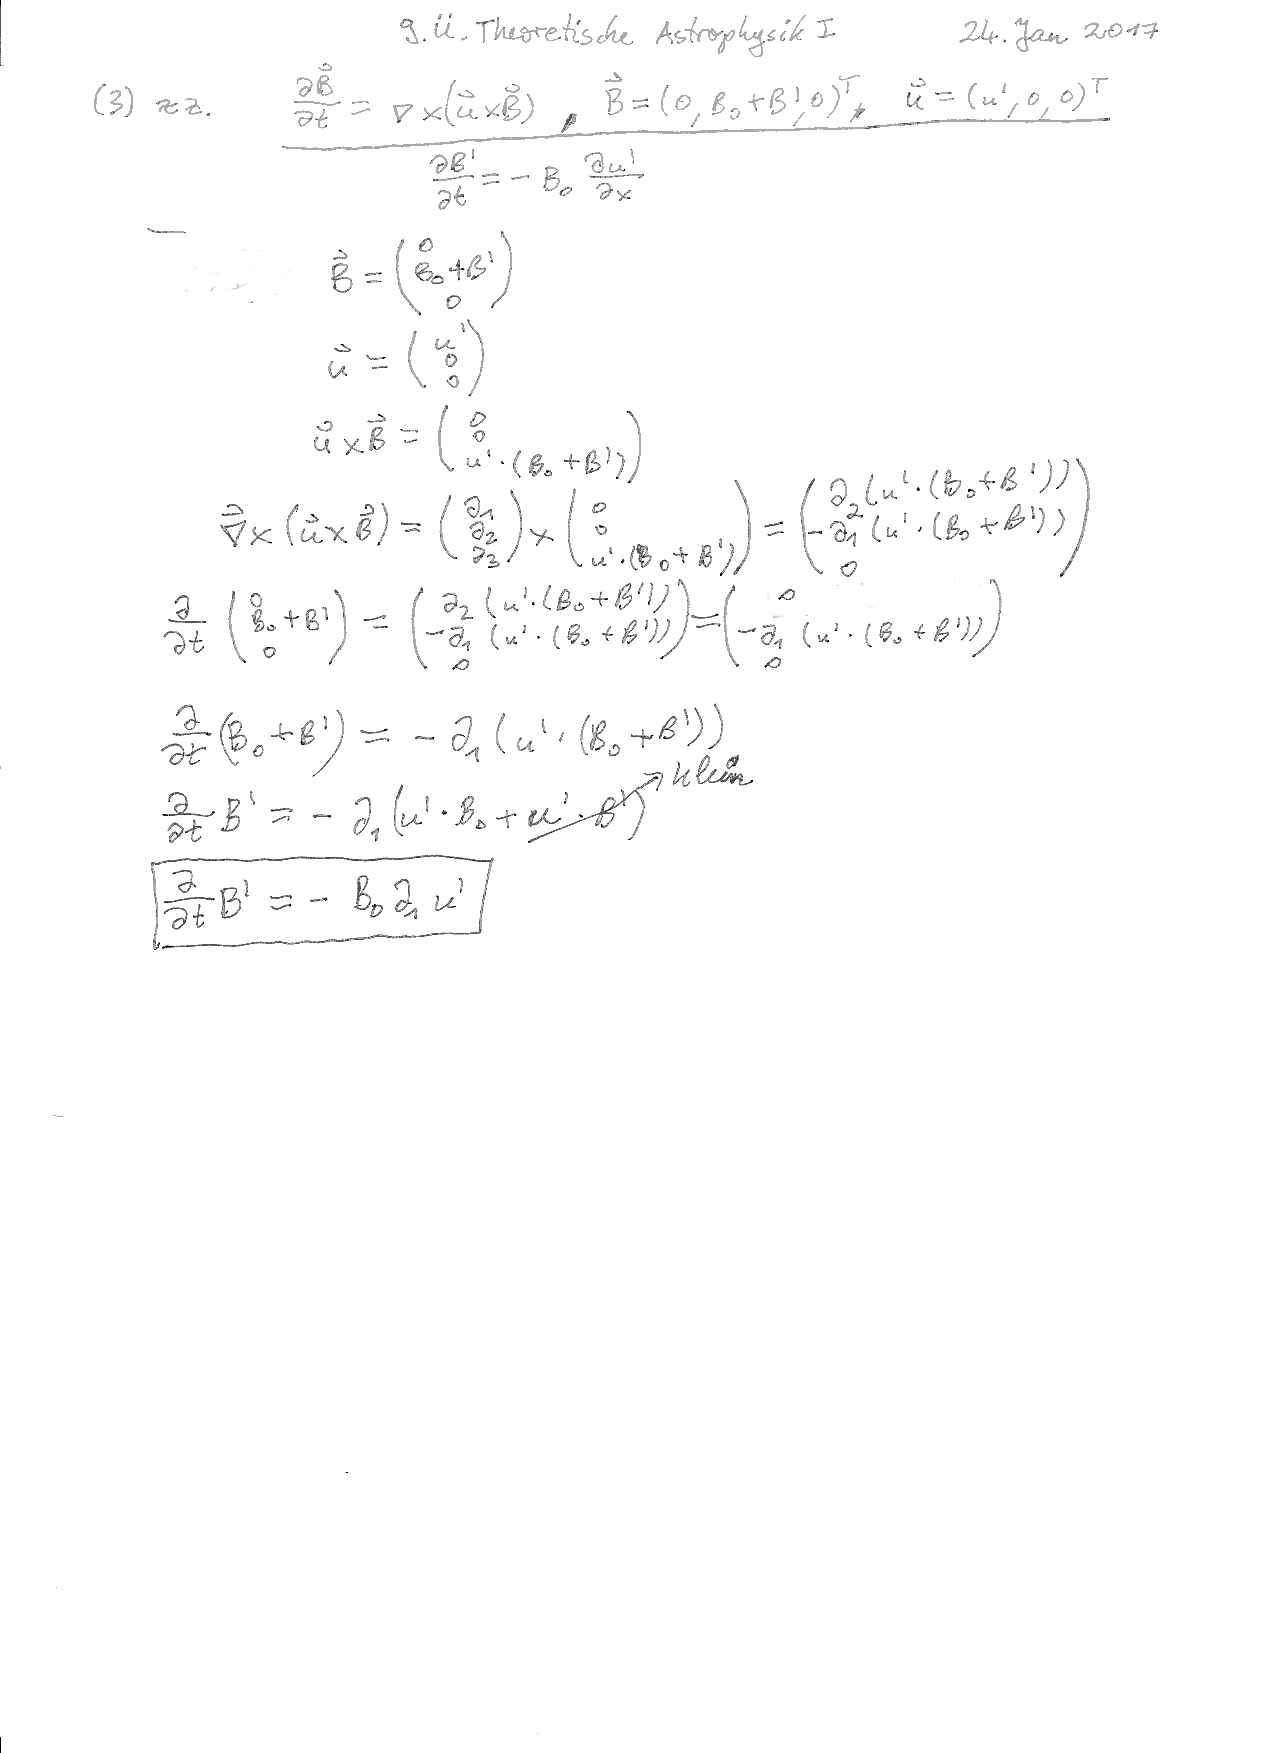 9. Ü. Theoretische Astrophysik I 24. Jan 2017
(3) zz. ∂B⃗/∂t = ∇×(u⃗×B⃗), B⃗ = (0, B₀+B', 0)ᵀ, u⃗ = (u', 0, 0)ᵀ
∂B'/∂t = − B₀ ∂u'/∂x
B⃗ = (0; B₀+B'; 0)
u⃗ = (u'; 0; 0)
u⃗×B⃗ = (0; 0; u'·(B₀+B'))
∇⃗×(u⃗×B⃗) = (∂₁; ∂₂; ∂₃) × (0; 0; u'·(B₀+B')) = (∂₂(u'·(B₀+B')); −∂₁(u'·(B₀+B')); 0)
∂/∂t (0; B₀+B'; 0) = (∂₂(u'·(B₀+B')); −∂₁(u'·(B₀+B')); 0) = (0; −∂₁(u'·(B₀+B')); 0)
∂/∂t (B₀+B') = − ∂₁(u'·(B₀+B'))
∂/∂t B' = − ∂₁(u'·B₀ + u'·B') → klein
∂/∂t B' = − B₀ ∂₁ u'